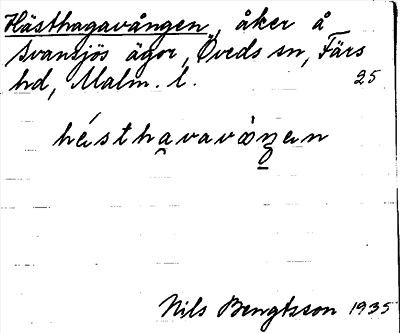 Hästhagavången, åker å
Svansjös ägor, Öveds sn, Färs
hd, Malm. l. 25
hésthavavåŋen
Nils Bengtsson 1935